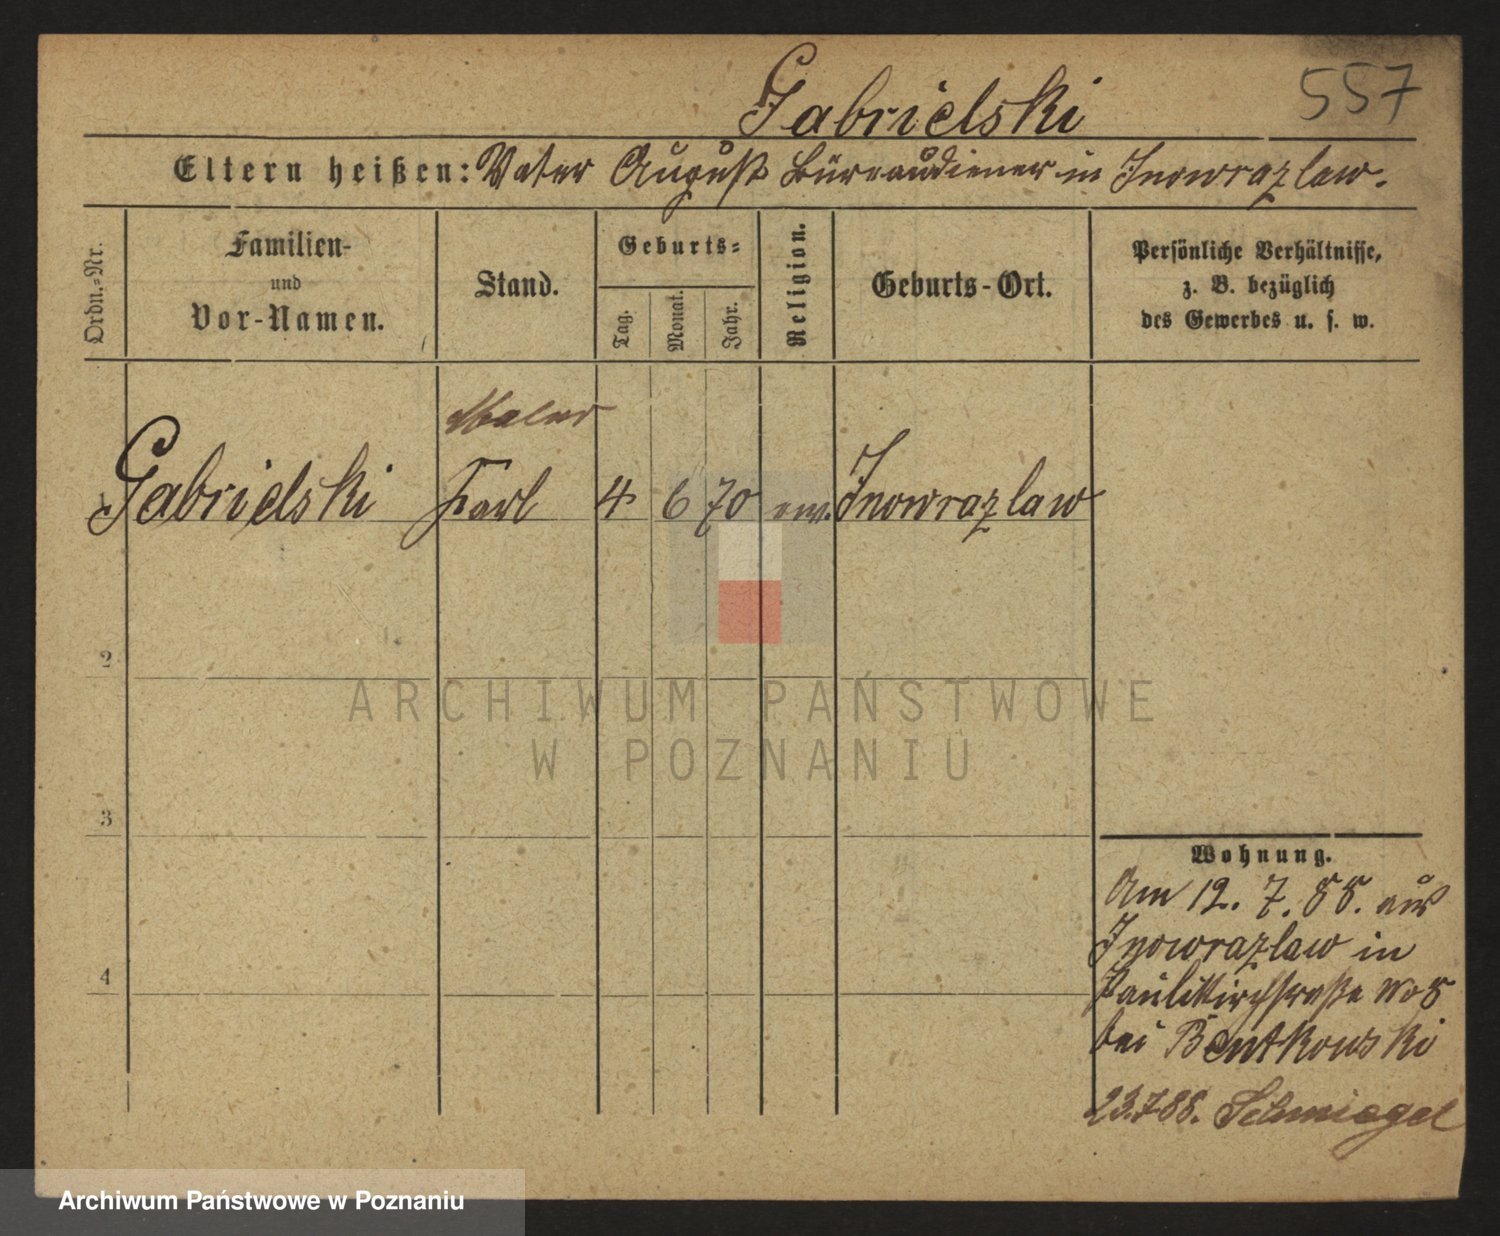 Gabrielski
557
Eltern heißen: Vater August Büreaudiener in Inowrazlaw.
Ordn.-Nr.
Familien-
und
Vor-Namen.
Stand.
Geburts-
Tag.
Monat.
Jahr.
Religion.
Geburts-Ort.
Persönliche Verhältnisse,
z. B. bezüglich
des Gewerbes u. s. w.
Maler
1 Gabrielski Karl 4 6 70 ev. Inowrazlaw
2
ARCHIWUM PAŃSTWOWE
W POZNANIU
3
4
Wohnung.
Am 12. 7. 88. aus
Inowrazlaw in
Paulikirchstraße No 8
bei Bentkowski
23.7.88. Schmiegel
Archiwum Państwowe w Poznaniu